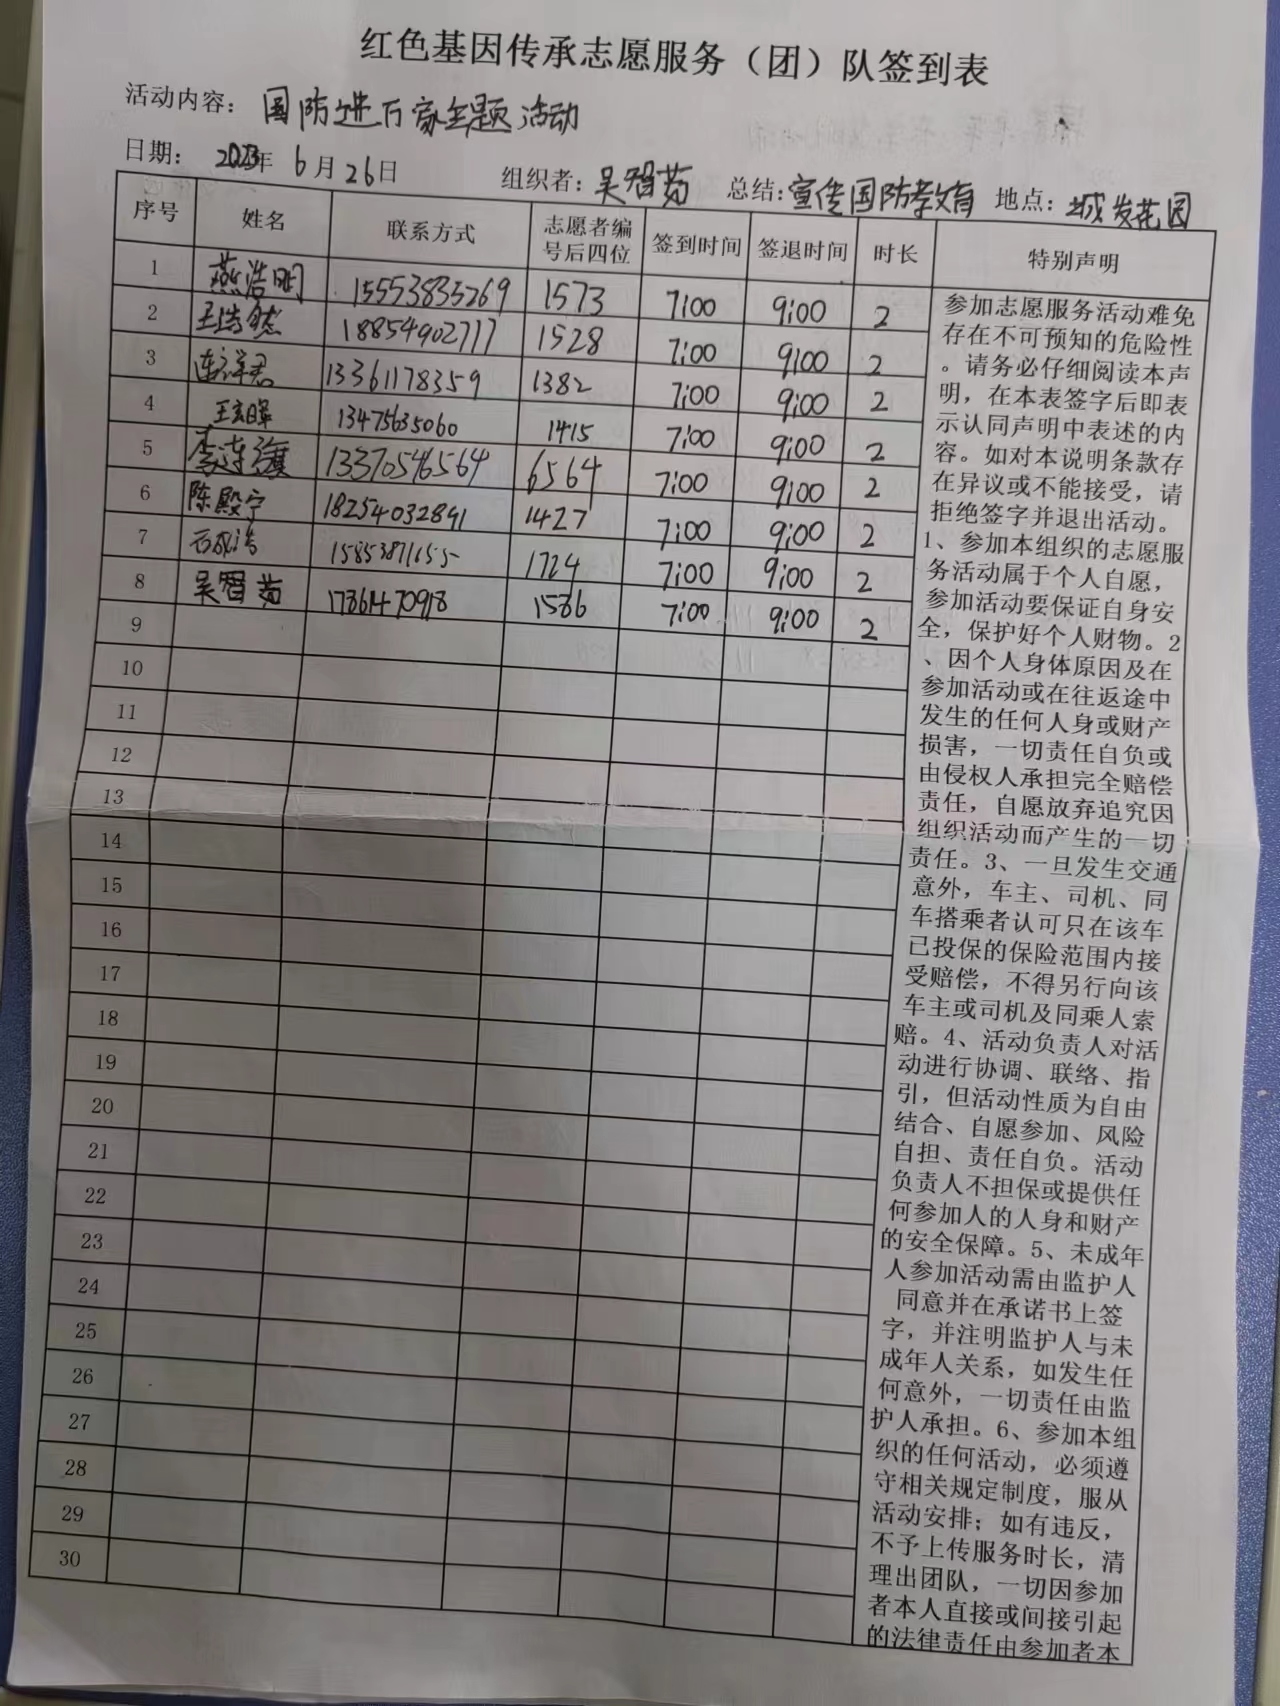 红色基因传承志愿服务（团）队签到表
活动内容：国防进万家主题活动
日期：2023年6月26日 组织者：吴智菊 总结：宣传国防教育 地点：城发花园
序号 姓名 联系方式 志愿者编号后四位 签到时间 签退时间 时长 特别声明
1 燕浩明 15553835269 1573 7:00 9:00 2
2 王浩然 18854902717 1528 7:00 9:00 2
3 13361178359 1382 7:00 9:00 2
4 王玄晖 13475635060 1415 7:00 9:00 2
5 李连 13370546564 6564 7:00 9:00 2
6 陈殿宁 18254032891 1427 7:00 9:00 2
7 石成浩 15853871655 1724 7:00 9:00 2
8 吴智菊 17861470918 1586 7:00 9:00 2
9
10
11
12
13
14
15
16
17
18
19
20
21
22
23
24
25
26
27
28
29
30
参加志愿服务活动难免
存在不可预知的危险性
。请务必仔细阅读本声
明，在本表签字后即表
示认同声明中表述的内
容。如对本说明条款存
在异议或不能接受，请
拒绝签字并退出活动。
1、参加本组织的志愿服
务活动属于个人自愿，
参加活动要保证自身安
全，保护好个人财物。2
、因个人身体原因及在
参加活动或在往返途中
发生的任何人身或财产
损害，一切责任自负或
由侵权人承担完全赔偿
责任，自愿放弃追究因
组织活动而产生的一切
责任。3、一旦发生交通
意外，车主、司机、同
车搭乘者认可只在该车
已投保的保险范围内接
受赔偿，不得另行向该
车主或司机及同乘人索
赔。4、活动负责人对活
动进行协调、联络、指
引，但活动性质为自由
结合、自愿参加、风险
自担、责任自负。活动
负责人不担保或提供任
何参加人的人身和财产
的安全保障。5、未成年
人参加活动需由监护人
同意并在承诺书上签
字，并注明监护人与未
成年人关系，如发生任
何意外，一切责任由监
护人承担。6、参加本组
织的任何活动，必须遵
守相关规定制度，服从
活动安排；如有违反，
不予上传服务时长，清
理出团队，一切因参加
者本人直接或间接引起
的法律责任由参加者本